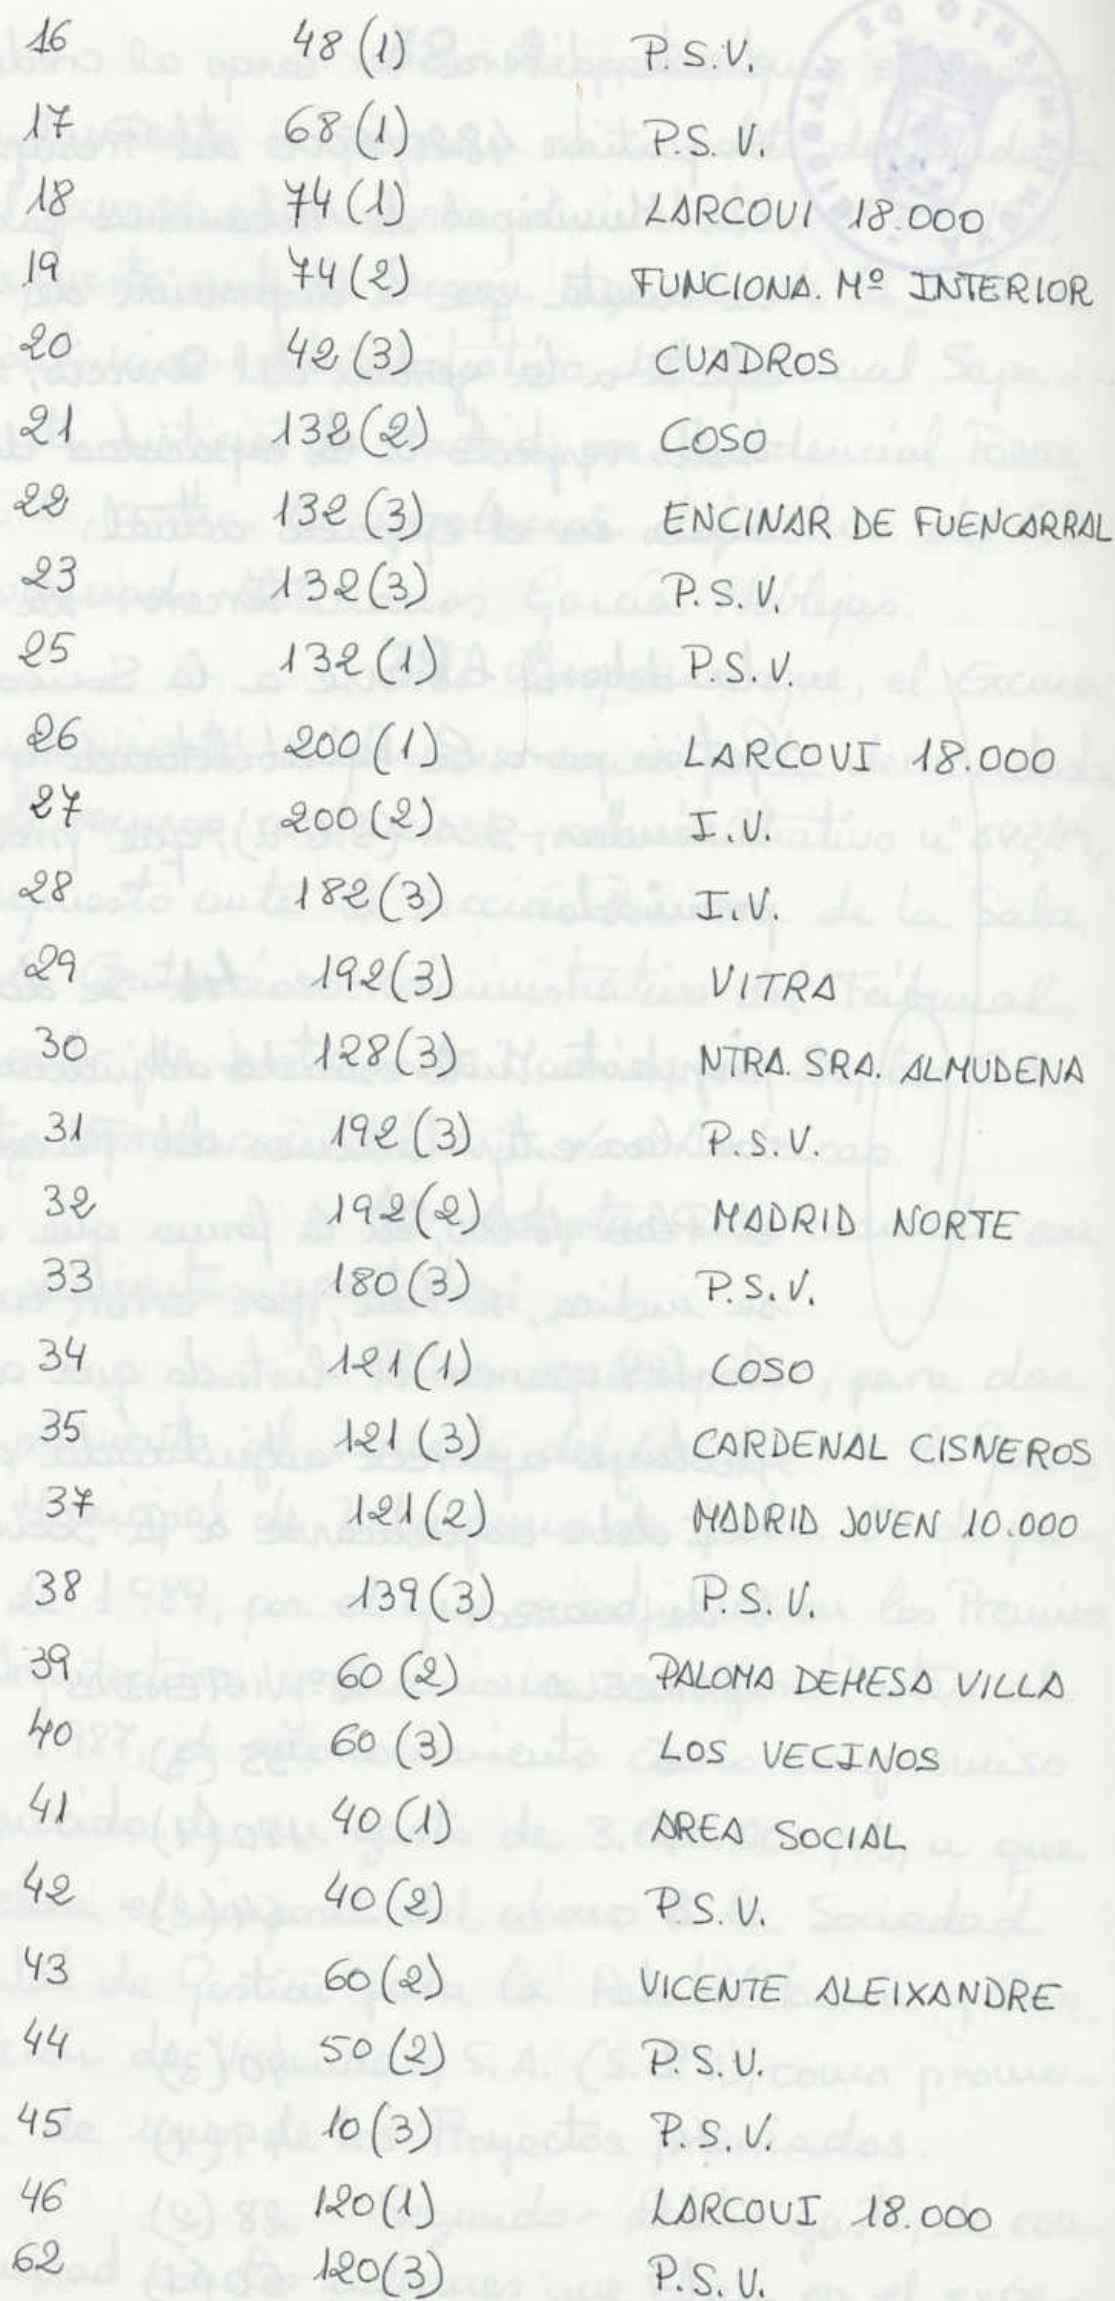 16 48 (1) P.S.V.
17 68 (1) P.S.V.
18 74 (1) LARCOVI 18.000
19 74 (2) FUNCIONA. Mº INTERIOR
20 42 (3) CUADROS
21 132 (2) COSO
22 132 (3) ENCINAR DE FUENCARRAL
23 132 (3) P.S.V.
25 132 (1) P.S.V.
26 200 (1) LARCOVI 18.000
27 200 (2) I.V.
28 182 (3) I.V.
29 192 (3) VITRA
30 128 (3) NTRA. SRA. ALMUDENA
31 192 (3) P.S.V.
32 192 (2) MADRID NORTE
33 180 (3) P.S.V.
34 121 (1) COSO
35 121 (3) CARDENAL CISNEROS
37 121 (2) MADRID JOVEN 10.000
38 139 (3) P.S.V.
39 60 (2) PALOMA DEHESA VILLA
40 60 (3) LOS VECINOS
41 40 (1) AREA SOCIAL
42 40 (2) P.S.V.
43 60 (2) VICENTE ALEIXANDRE
44 50 (2) P.S.V.
45 10 (3) P.S.V.
46 120 (1) LARCOVI 18.000
62 120 (3) P.S.V.